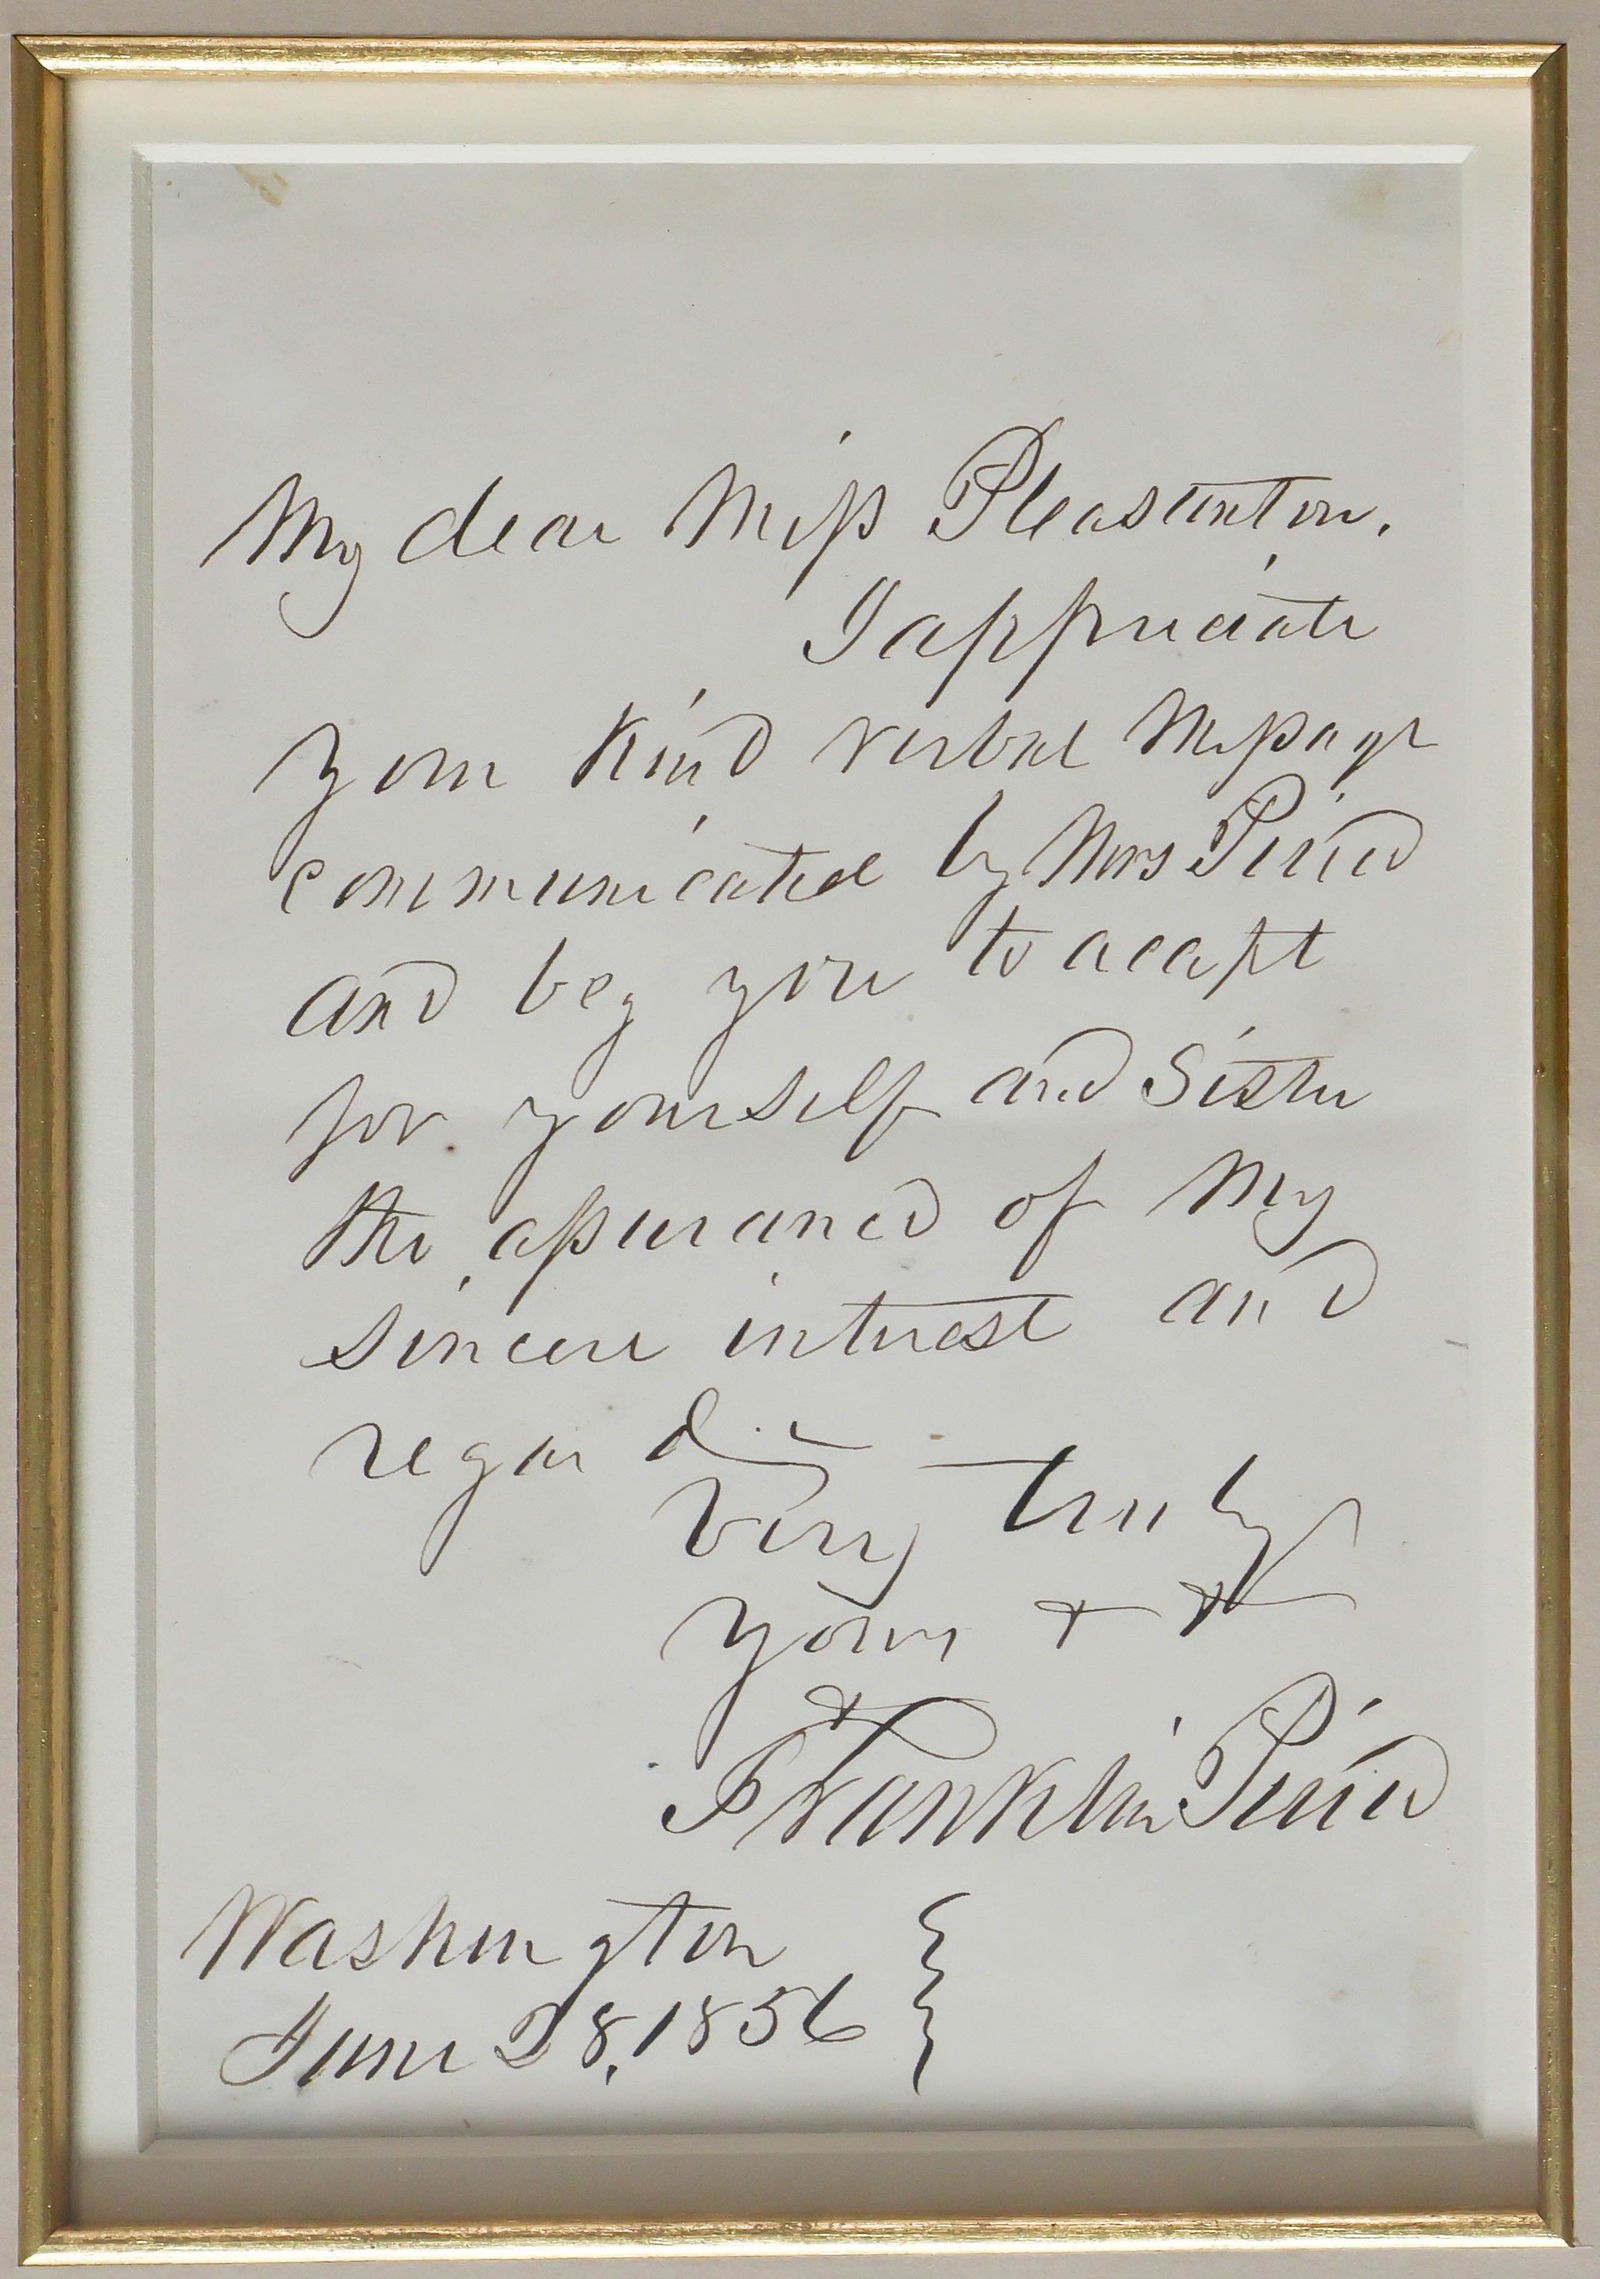 My dear Miss Pleasanton.
I appreciate
your kind verbal message
communicated by Mrs Pierce
and beg you to accept
for yourself and Sister
the assurance of my
sincere interest and
regard
Very truly
yours + +
Franklin Pierce
Washington
June 28, 1856